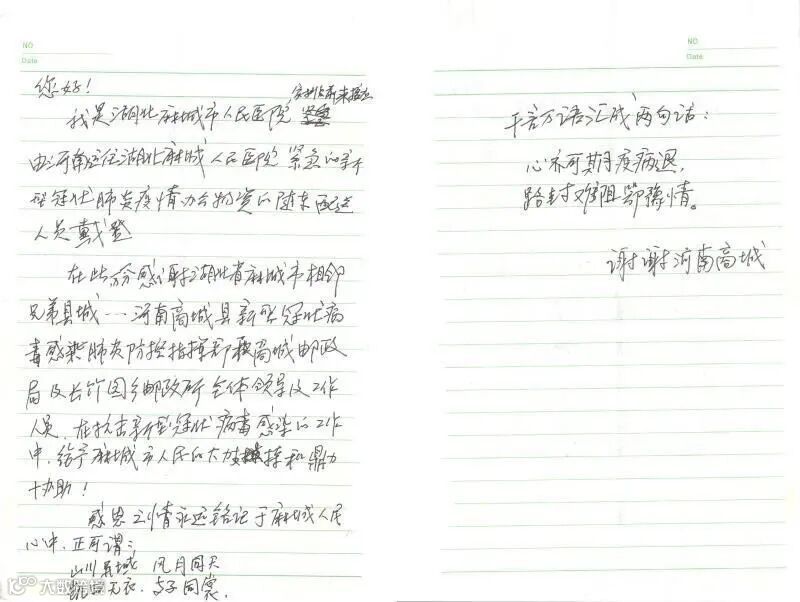 NO
Date
您好!
我是湖北麻城市人民医院
由河南运往湖北麻城人民医院紧急的新
型冠状肺炎疫情办公物资的随车配送
人员戴登
在此万分感谢湖北省麻城市相邻
兄弟县城一河南商城县新型冠状病
毒感染肺炎防控指挥部和商城邮政
局及长竹园乡邮政所全体领导及工作
人员,在抗击新型冠状病毒感染的工作
中,给予麻城市人民的大力支持和鼎力
协助!
感恩之情永远铭记于麻城人民
心中,正可谓:
山川异域 风月同天
岂曰无衣,与子同裳。
大数跨境
NO
Date
千言万语汇成两句话:
心齐可期疫病退,
路封难阻鄂豫情。
谢谢河南商城